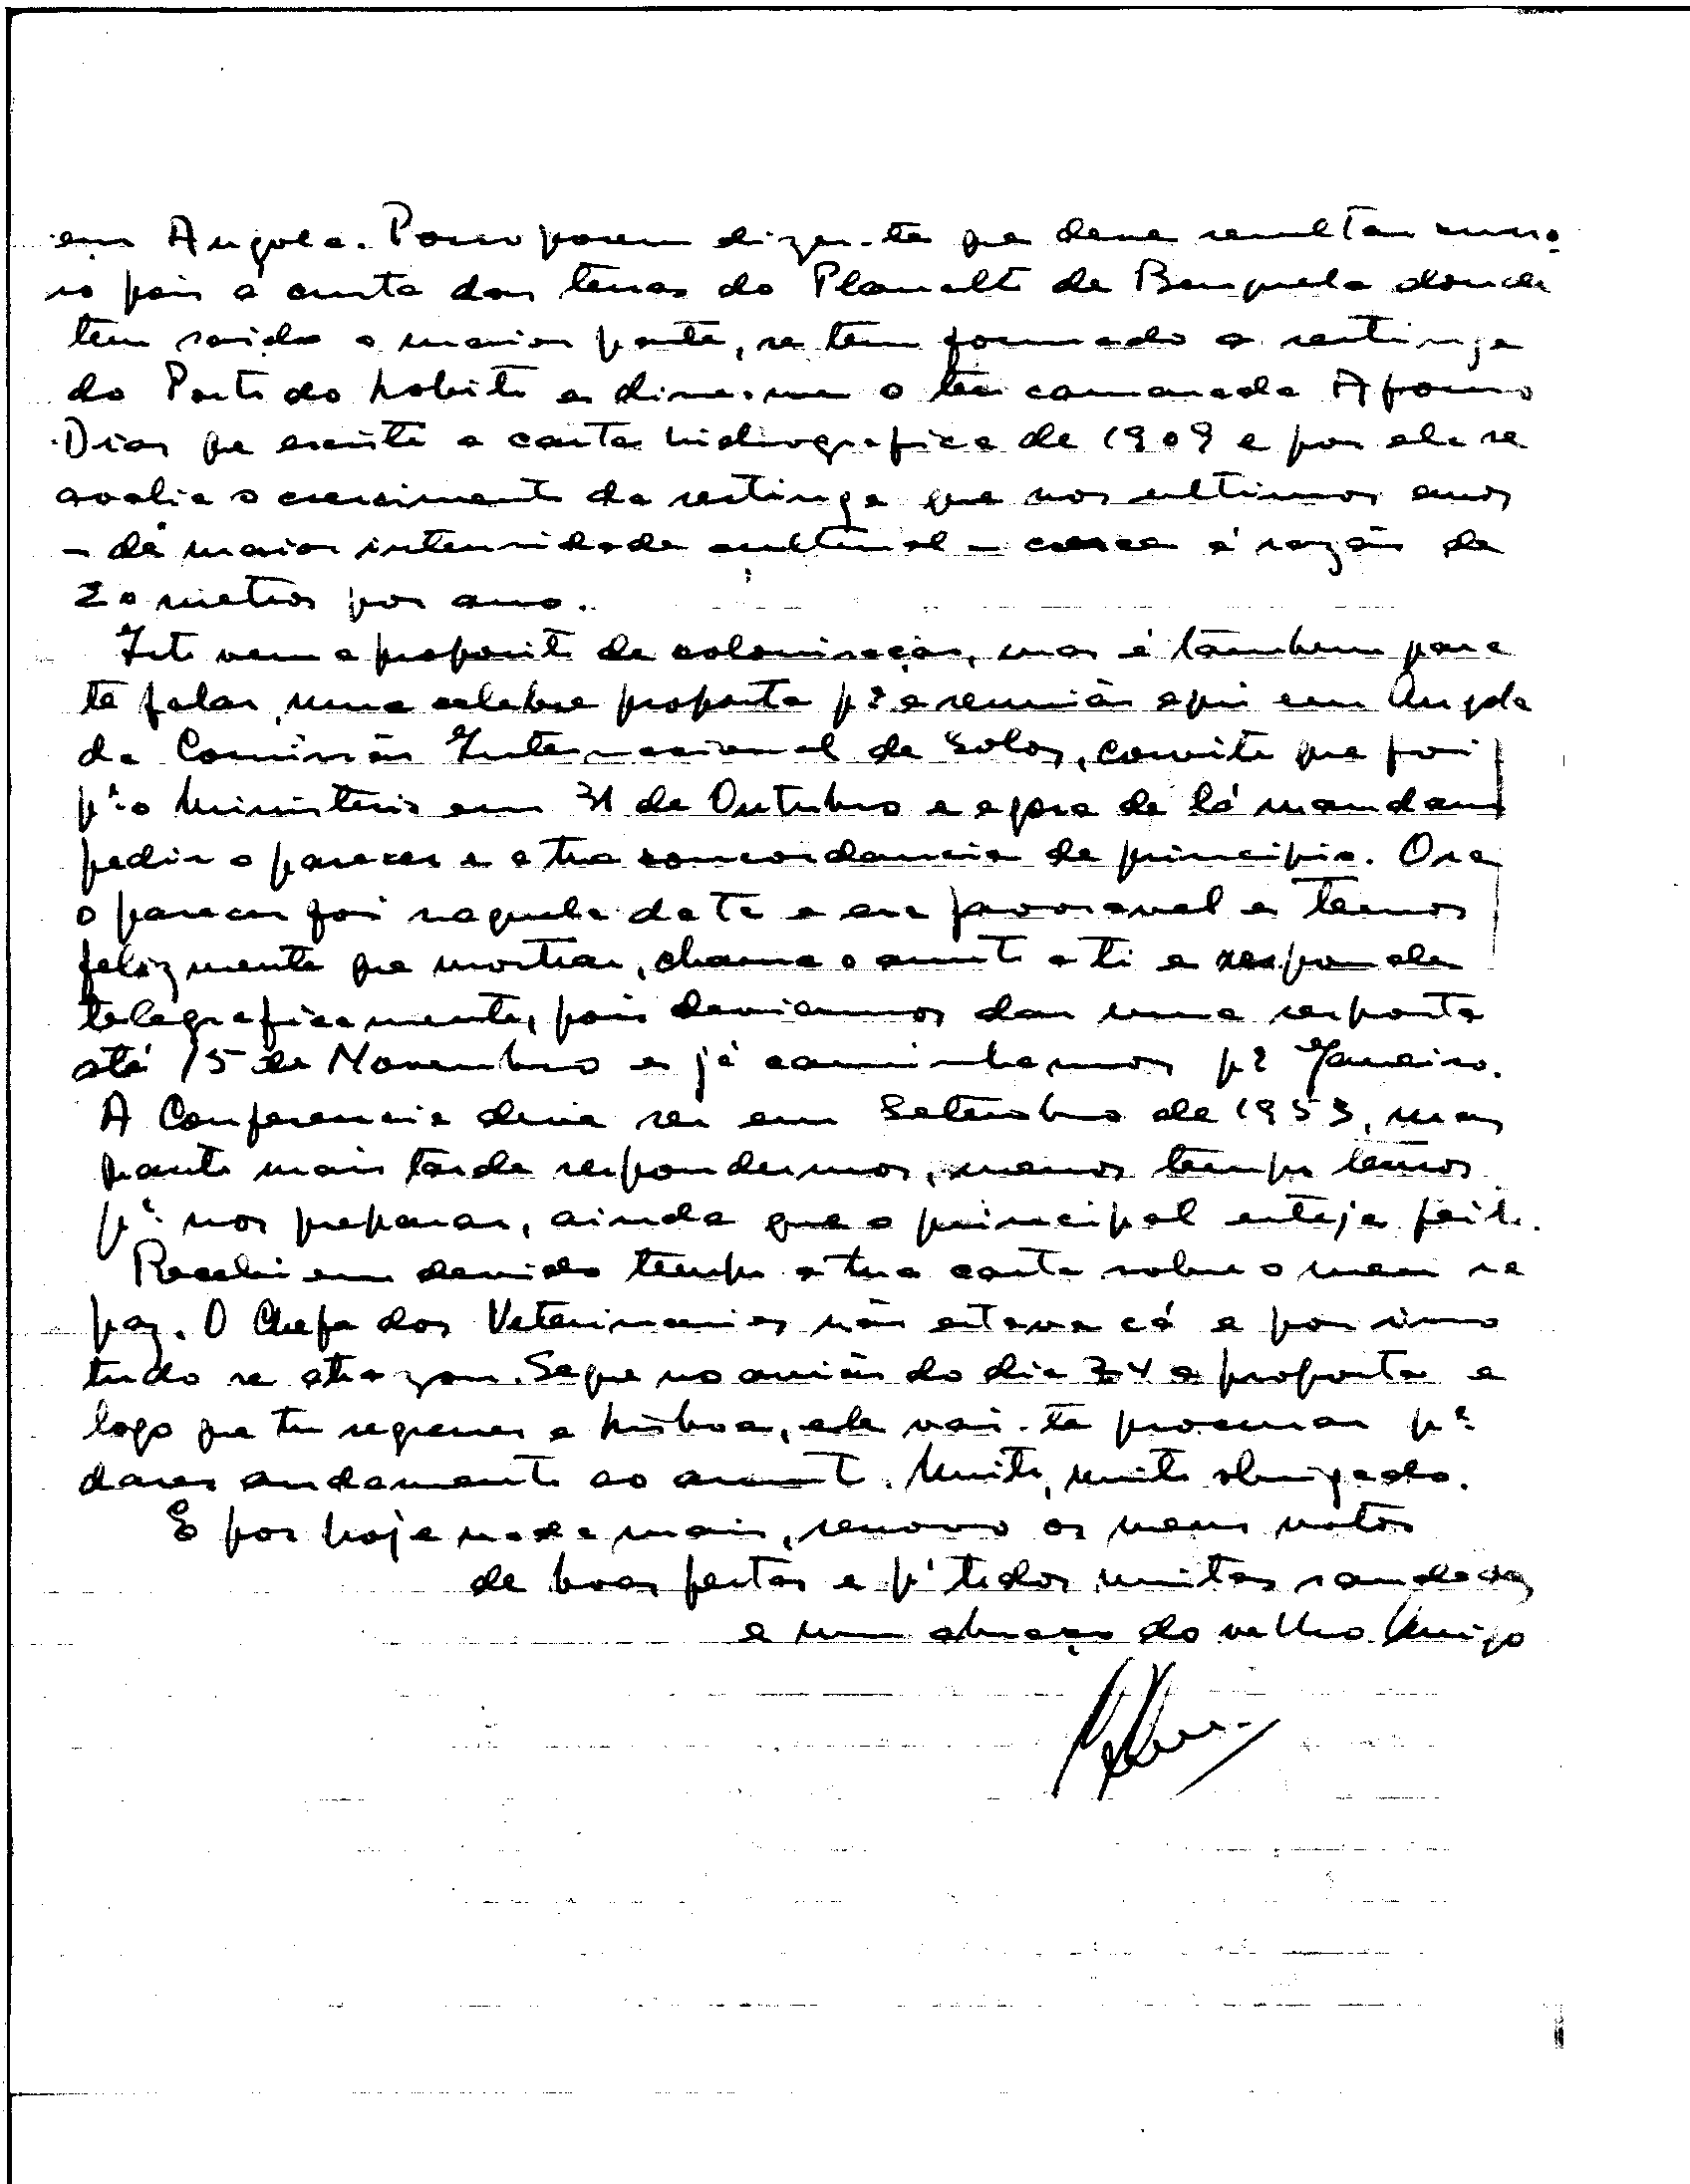 em Angola. Posso porem dizer-te que deve resultar
so pois á custa das terras do Planalto de Benguela donde
tem saido a maior parte, se tem formado a restinga
do Porto do Lobito e disse-me o teu camarada Afonso
Dias que existe a carta hidrografica de 1909 e por ela se
avalia o crescimento da restinga que nos ultimos anos
- de maior intensidade cultural - cresce á razão de
20 metros por ano.
Isto vem a proposito de colonisação, mas é tambem para
te falar, numa celebre proposta pª a reunião aqui em Angola
da Comissão Internacional de Solos, convite que foi
pª o Ministerio em 31 de Outubro e agora de lá mandam
pedir o parecer e a tua concordancia de principio. Ora
o parecer foi naquela data e era favoravel e temos
felizmente que mostrar, chama o assunto a ti e responde
telegraficamente, pois deviamos dar uma resposta
até 15 de Novembro e já caminhamos pª Janeiro.
A Conferencia devia ser em Setembro de 1953, mas
quanto mais tarde respondermos, menos tempo temos
pª nos preparar, ainda que o principal esteja feito.
Recebi em devido tempo a tua carta sobre o meu ra
paz. O Chefe dos Veterinarios não estava cá e por isso
tudo se atrazou. Segue no avião do dia 24 a proposta e
logo que tu regresses a Lisboa, ele vai-te procurar pª
dares andamento ao assunto. Muito, muito obrigado.
E por hoje nada mais, renovo os meus votos
de boas festas e pª todos muitas saudades
e um abraço do velho Amigo